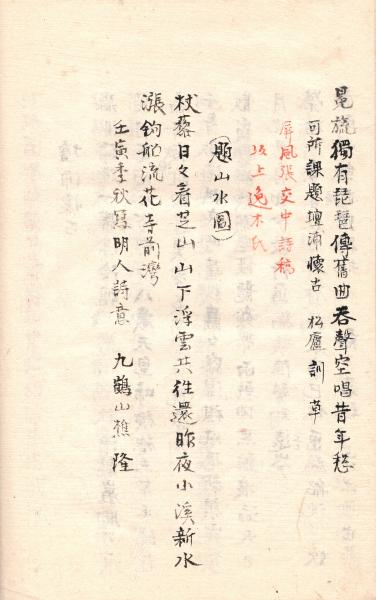 晃旒獨有琵琶傳舊曲吞聲空唱昔年愁
可所課題壇浦懷古 松廬 訓草
屏風張交中詩稿
坂上逸木氏
(題山水圖)
杖藜日々看芝山山下浮雲共往還昨夜小溪新水
漲釣船流花寺前灣
壬寅季秋寫明人詩意 九鶴山樵 隆